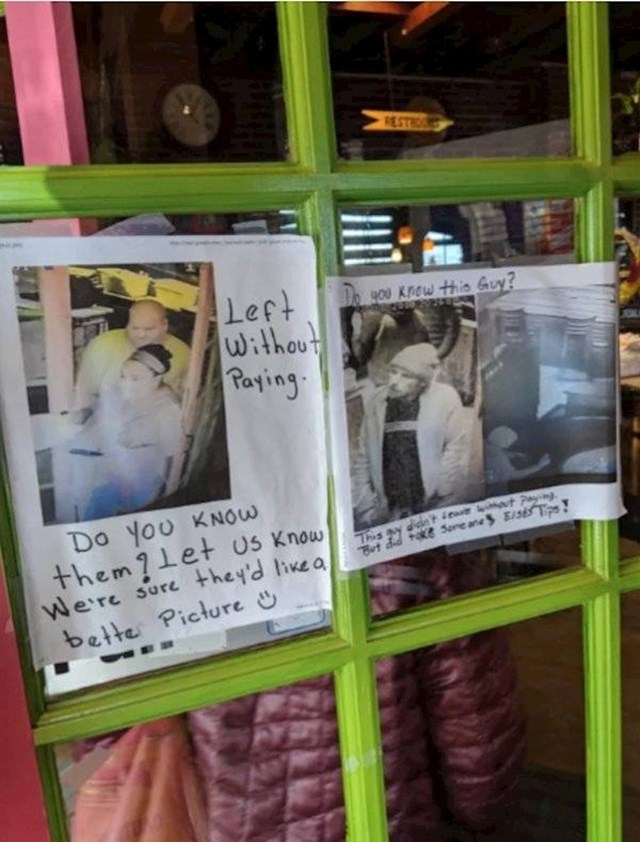 RESTROOMS
Left
Without
Paying.
DO YOU KNOW
them? Let us know
We're sure they'd like a
bette Picture
Do you know this Guy?
This guy didn't Leave without paying.
But did take Someone's Elses Tips!